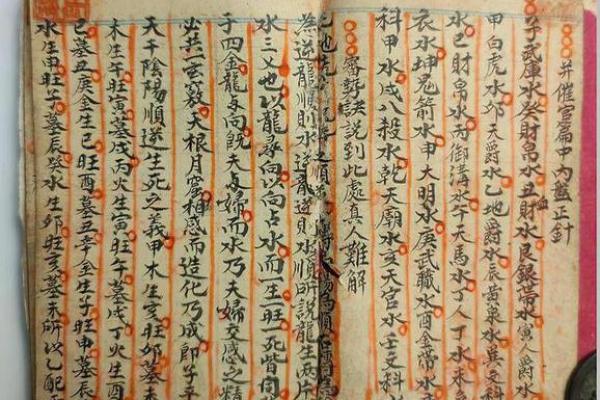 并催官篇中内盤正針
子武庫水癸財帛水丑財水艮銀帶水寅人爵水
甲白虎水卯天爵水乙地爵水辰黄泉水巽文科
水巳財帛水丙御溝水午天馬水丁人丁水未
衣水坤鬼箭水申大明水庚武職水酉金帶水
科甲水戌八殺水乾天廟水亥天宮水壬文科
審龍訣說到此處真人難解
爲逆龍順則水逆龍逆具水順所説龍生
水三义也以龍尋向以向占水而生旺死皆
子四金龍与向既夫与婦而水乃夫婦交感之精
必然玄竅天根月窟相感而造化乃成即
天干陰陽順逆生死之義甲木生亥旺卯墓未
木生午旺寅墓戌丙火生寅旺午墓戌丁火生酉
巳墓丑庚金生巳旺酉墓丑辛金生子旺申墓辰
水生申旺子墓辰癸水生卯旺亥墓未所以乙配